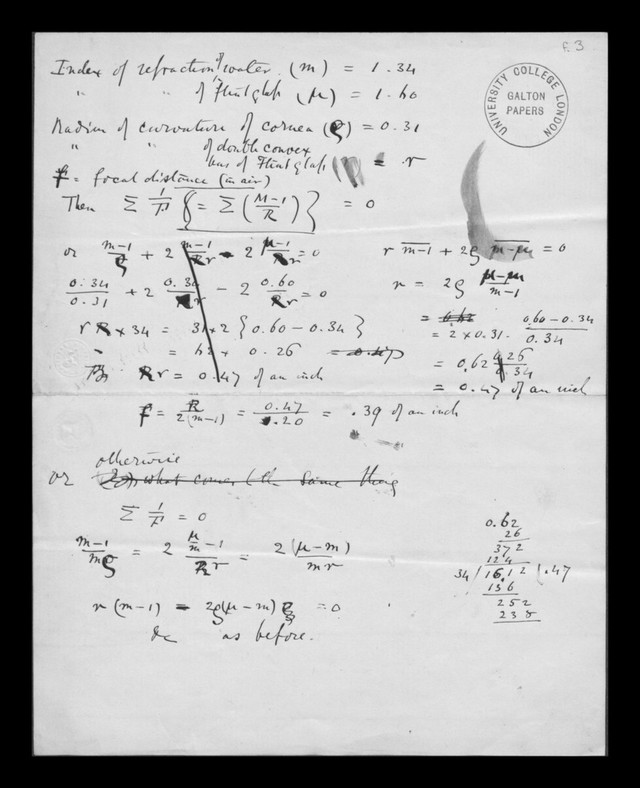 f. 3
UNIVERSITY COLLEGE LONDON
GALTON
PAPERS
Index of refraction of water (m) = 1.34
" " of Flint glass (μ) = 1.60
Radius of curvature of cornea (ρ) = 0.31
" " of double convex
lens of Flint glass = r
f = focal distance (in air)
Then Σ 1/F { = Σ (M-1/R) } = 0
or m-1/ρ + 2 m-1/r - 2 μ-1/r = 0
0.34/0.31 + 2 0.34/r - 2 0.60/r = 0
r × 34 = 31×2 { 0.60 - 0.34 }
= 62 × 0.26
r = 0.47 of an inch
f = R/2(m-1) = 0.47/1.20 = .39 of an inch
r m-1 + 2ρ m-μ = 0
r = 2ρ μ-m/m-1
= 0.62
= 2 × 0.31. 0.60-0.34/0.34
= 0.62 .26/.34
= 0.47 of an inch
or otherwise
what comes to the same thing
Σ 1/F = 0
m-1/mρ = 2 μ/m -1/r = 2(μ-m)/mr
r (m-1) - 2ρ(μ-m) = 0
&c as before.
0.62
26
372
124
34/16.12(.47
136
252
238